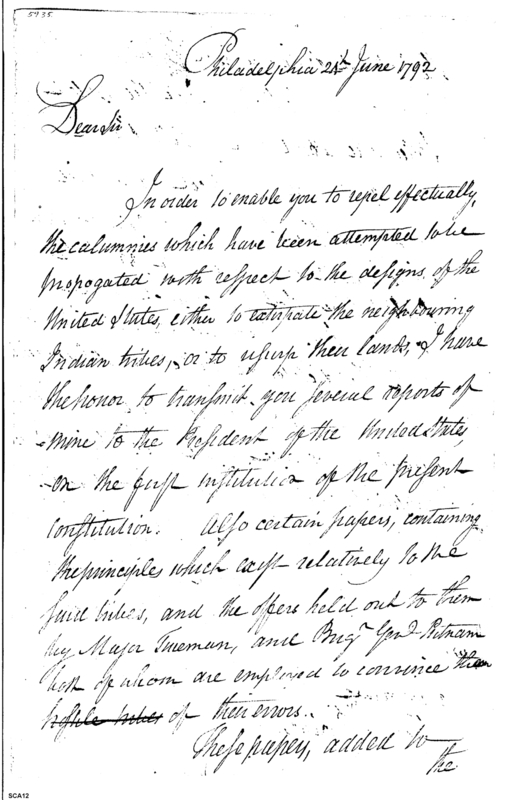 5935
Philadelphia 21st June 1792
Dear Sir
In order to enable you to repel effectually,
the calumnies which have been attempted to be
propogated with respect to the designs, of the
United States, either to extirpate the neighbouring
Indian tribes, or to usurp their lands, I have
the honor to transmit you several reports of
mine to the President of the United States,
on the first institution of the present
constitution. Also certain papers, containing
the principles which exist relatively to the
said tribes, and the offers held out to them
by Major Trueman, and Brigr Genl Putnam
both of whom are employed to convince them
hostile tribes of their errors.
These papers, added to
the
SCA12